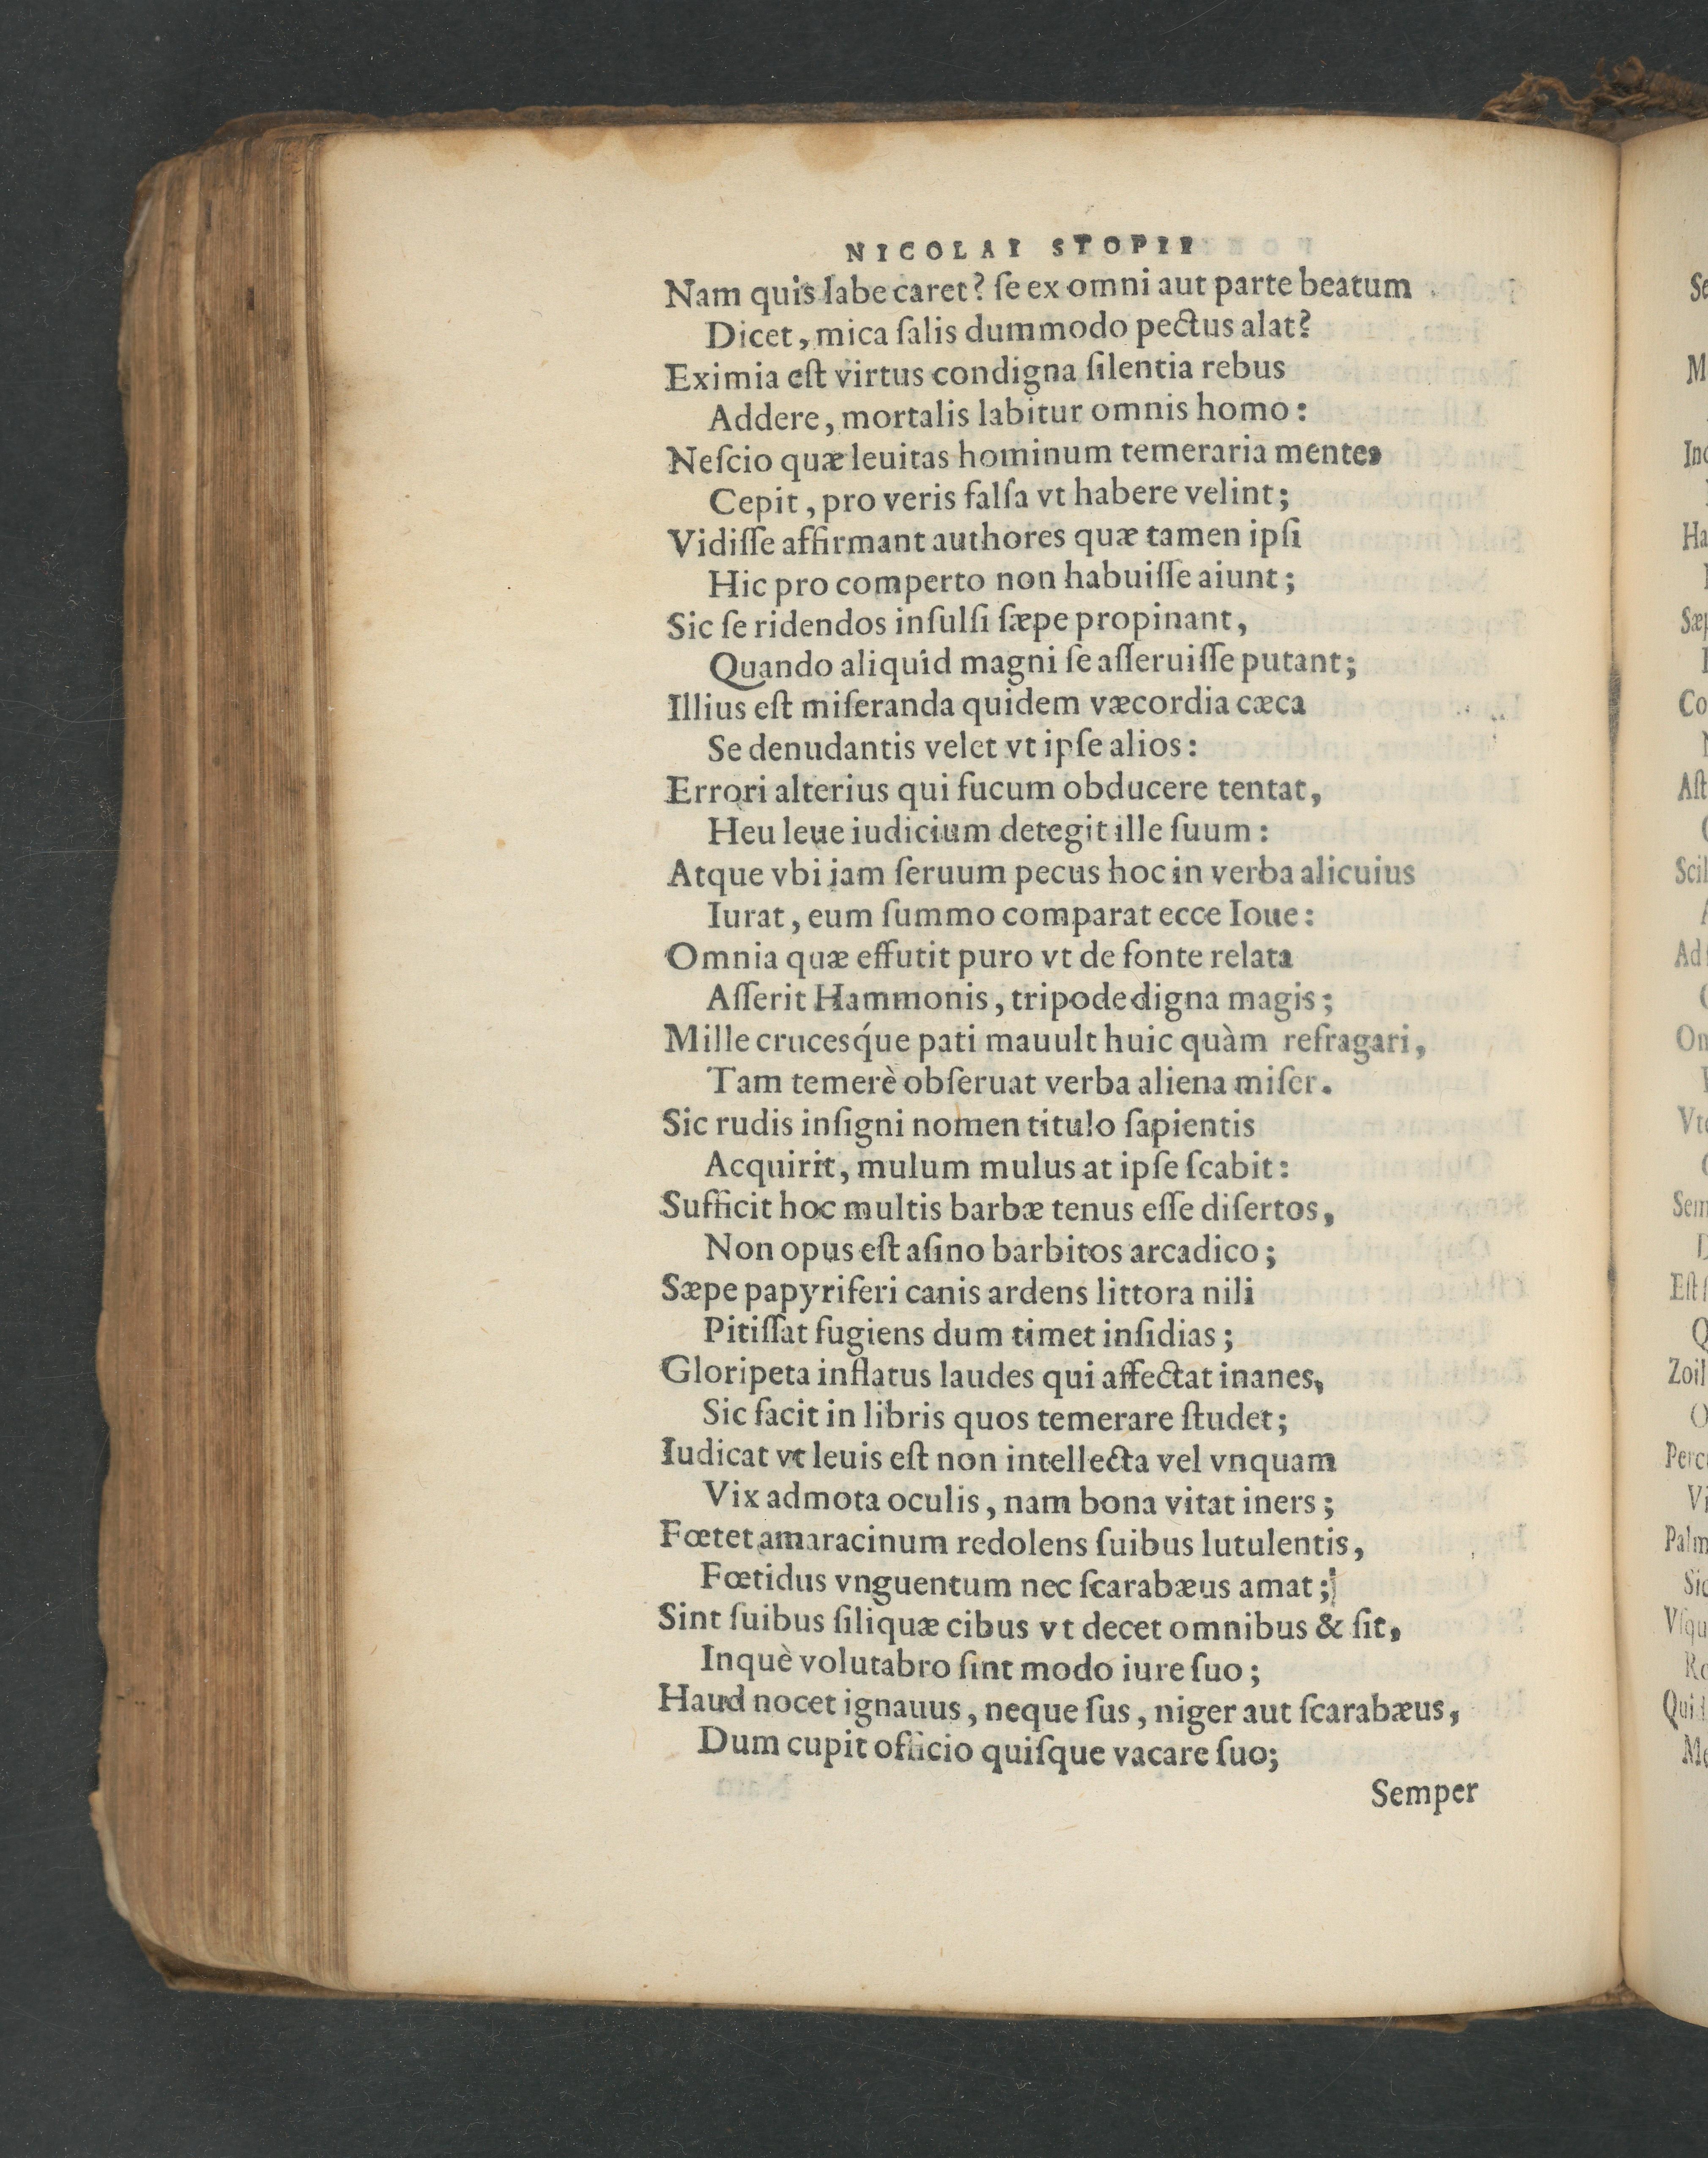 NICOLAI STOPII
Nam quis labe caret? ſe ex omni aut parte beatum
Dicet, mica ſalis dummodo pectus alat?
Eximia eſt virtus condigna ſilentia rebus
Addere, mortalis labitur omnis homo:
Neſcio quæ leuitas hominum temeraria mentes
Cepit, pro veris falſa vt habere velint;
Vidiſſe affirmant authores quæ tamen ipſi
Hic pro comperto non habuiſſe aiunt;
Sic ſe ridendos inſulſi ſæpe propinant,
Quando aliquid magni ſe aſſeruiſſe putant;
Illius eſt miſeranda quidem væcordia cæca
Se denudantis velet vt ipſe alios:
Errori alterius qui fucum obducere tentat,
Heu leue iudicium detegit ille ſuum:
Atque vbi iam ſeruum pecus hoc in verba alicuius
Iurat, eum ſummo comparat ecce Ioue:
Omnia quæ effutit puro vt de fonte relata
Aſſerit Hammonis, tripode digna magis;
Mille crucesq́ue pati mauult huic quàm refragari,
Tam temerè obſeruat verba aliena miſer.
Sic rudis inſigni nomen titulo ſapientis
Acquirit, mulum mulus at ipſe ſcabit:
Sufficit hoc multis barbæ tenus eſſe diſertos,
Non opus eſt aſino barbitos arcadico;
Sæpe papyriferi canis ardens littora nili
Pitiſſat fugiens dum timet inſidias;
Gloripeta inflatus laudes qui affectat inanes,
Sic facit in libris quos temerare ſtudet;
Iudicat vt leuis eſt non intellecta vel vnquam
Vix admota oculis, nam bona vitat iners;
Fœtet amaracinum redolens ſuibus lutulentis,
Fœtidus vnguentum nec ſcarabæus amat;
Sint ſuibus ſiliquæ cibus vt decet omnibus & ſit,
Inquè volutabro ſint modo iure ſuo;
Haud nocet ignauus, neque ſus, niger aut ſcarabæus,
Dum cupit officio quiſque vacare ſuo;
Semper